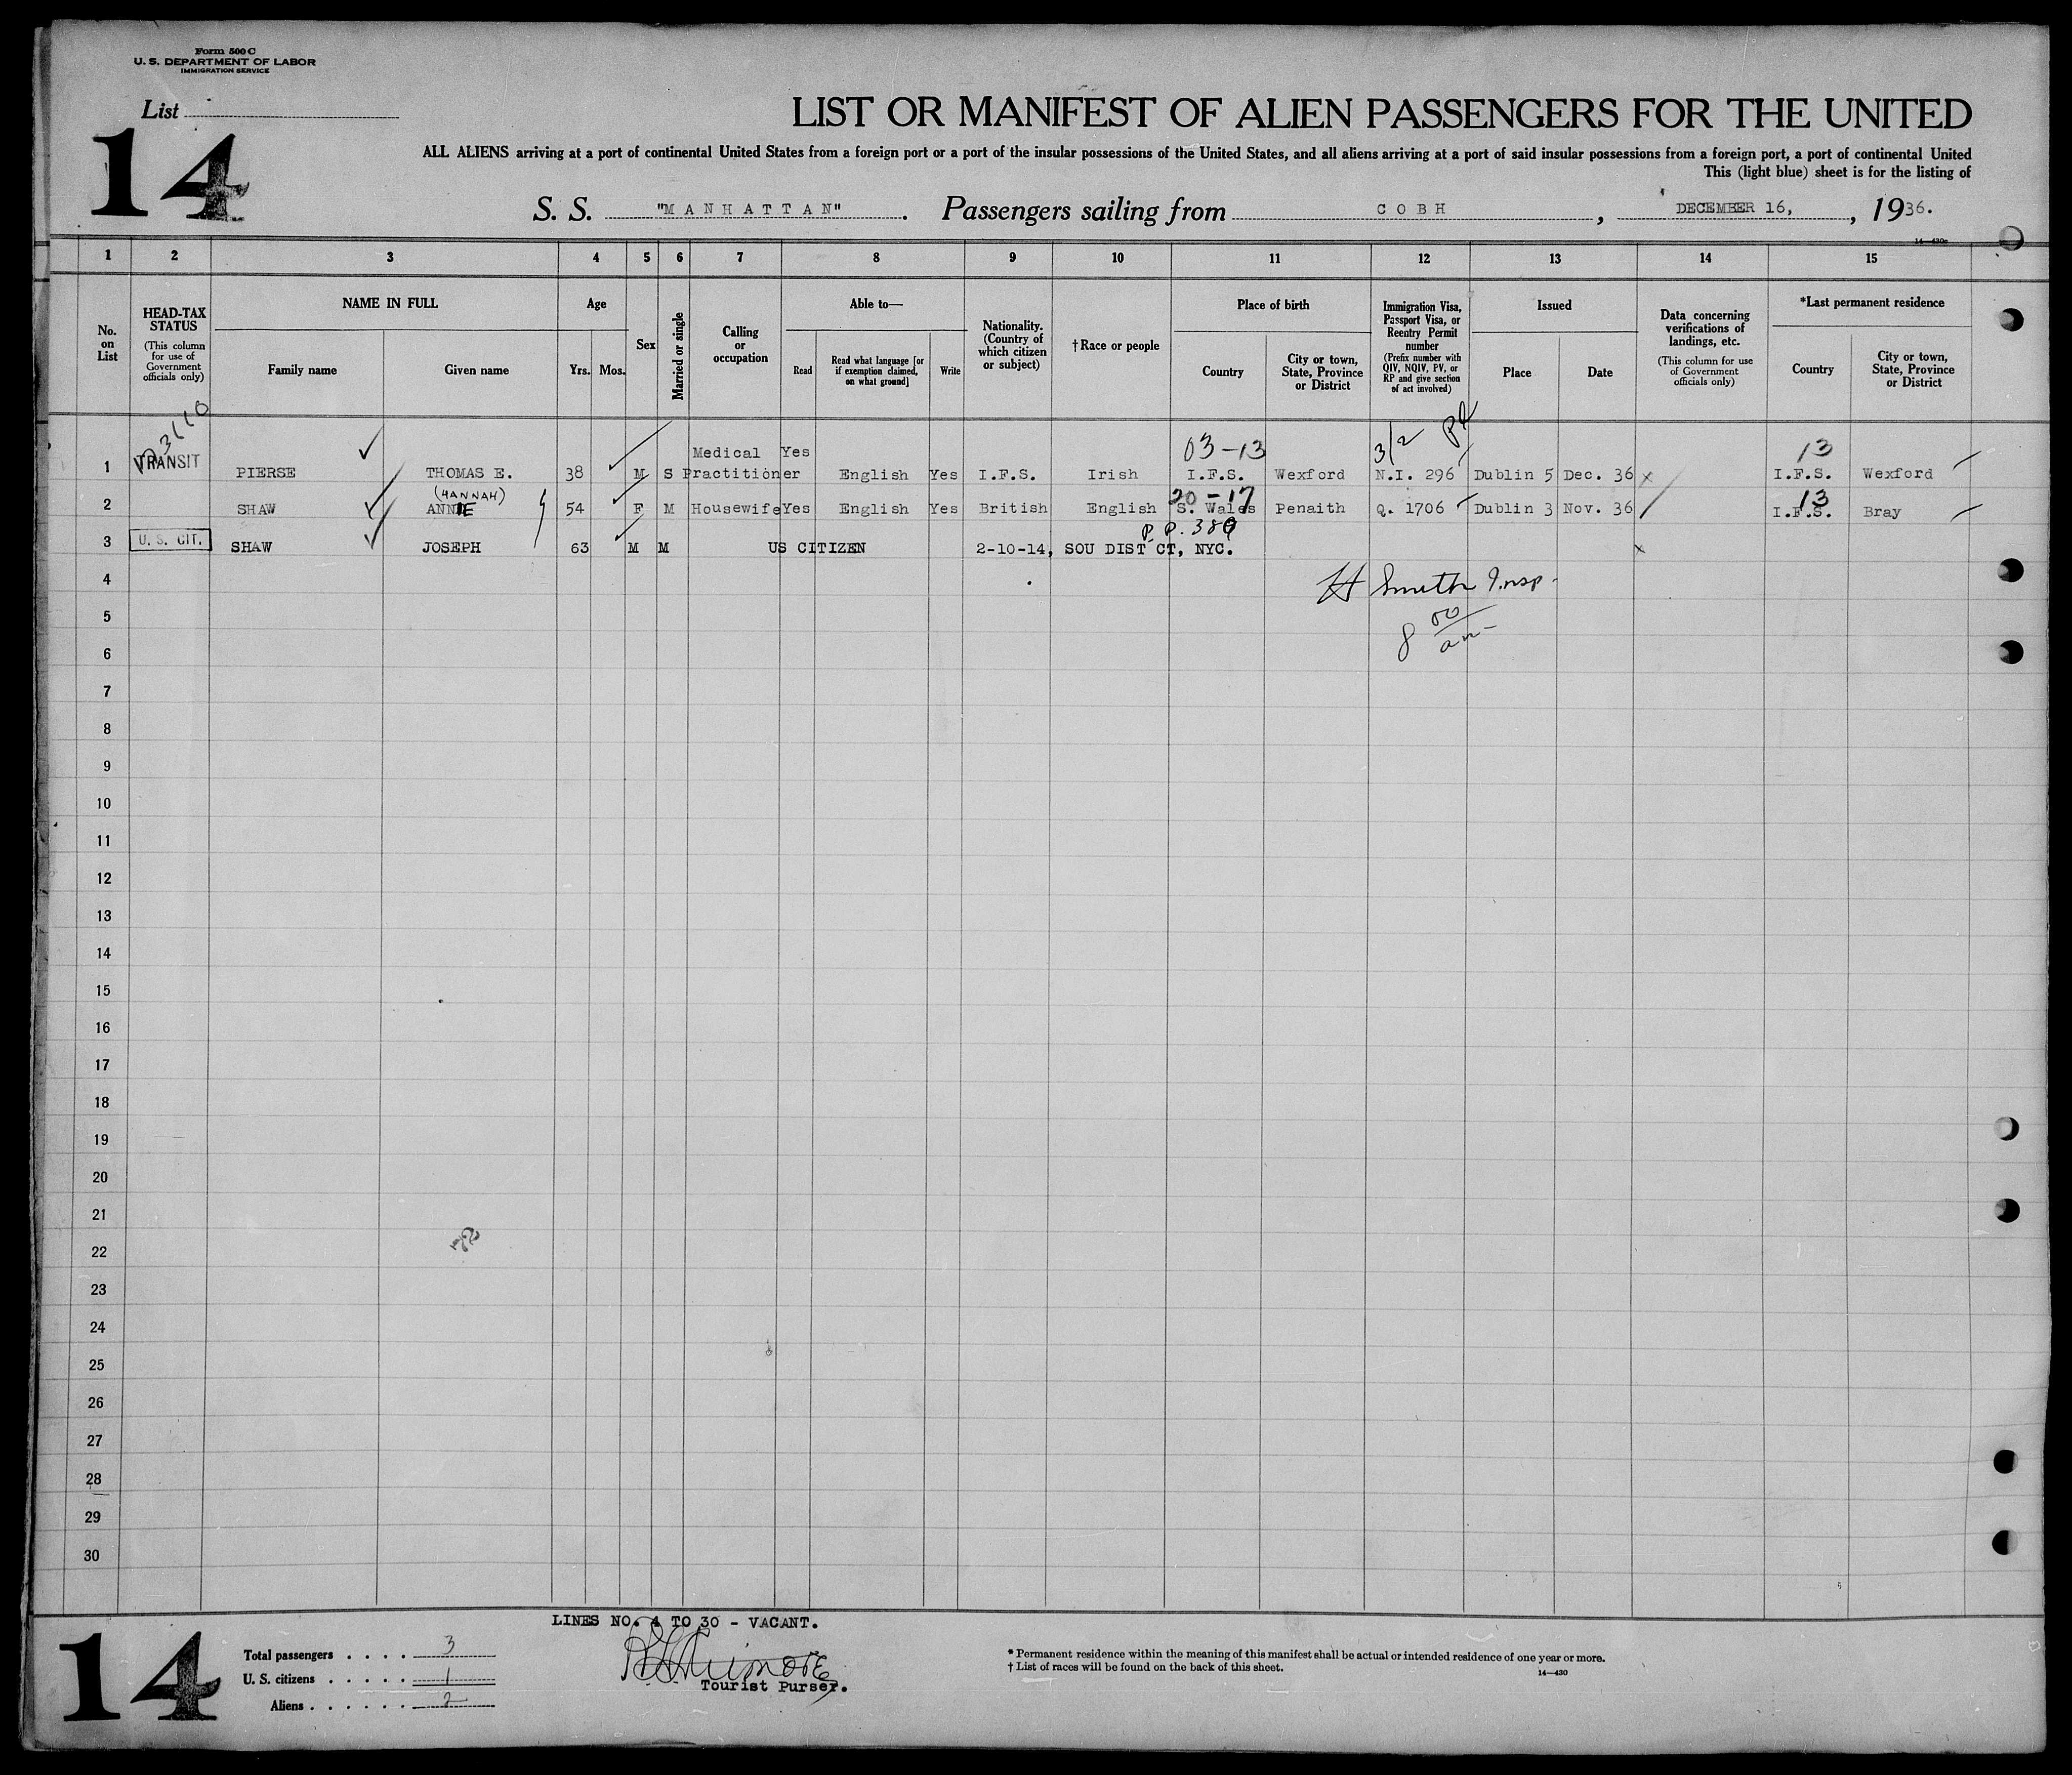 Form 500 C
U. S. DEPARTMENT OF LABOR
IMMIGRATION SERVICE
List
14
LIST OR MANIFEST OF ALIEN PASSENGERS FOR THE UNITED
ALL ALIENS arriving at a port of continental United States from a foreign port or a port of the insular possessions of the United States, and all aliens arriving at a port of said insular possessions from a foreign port, a port of continental United
This (light blue) sheet is for the listing of
S. S. "MANHATTAN". Passengers sailing from COBH, DECEMBER 16, , 1936.
14—430c
1 2 3 4 5 6 7 8 9 10 11 12 13 14 15
No. on List
HEAD-TAX STATUS (This column for use of Government officials only)
NAME IN FULL
Family name Given name
Age
Yrs. Mos.
Sex
Married or single
Calling or occupation
Able to—
Read Read what language [or if exemption claimed, on what ground] Write
Nationality. (Country of which citizen or subject)
†Race or people
Place of birth
Country City or town, State, Province or District
Immigration Visa, Passport Visa, or Reentry Permit number (Prefix number with QIV, NQIV, PV, or RP and give section of act involved)
Issued
Place Date
Data concerning verifications of landings, etc. (This column for use of Government officials only)
*Last permanent residence
Country City or town, State, Province or District
03-13 3/2 13
1 TRANSIT PIERSE THOMAS E. 38 M S Medical Practitioner Yes English Yes I.F.S. Irish I.F.S. Wexford N.I. 296 Dublin 5 Dec. 36 x I.F.S. Wexford
(HANNAH) 20-17 13
2 SHAW ANNIE 54 F M Housewife Yes English Yes British English S. Wales Penaith Q. 1706 Dublin 3 Nov. 36 I.F.S. Bray
P.P. 389
3 U. S. CIT. SHAW JOSEPH 63 M M US CITIZEN 2-10-14, SOU DIST CT, NYC. x
4
H Smith Insp.
5
8 00 am
6
7
8
9
10
11
12
13
14
15
16
17
18
19
20
21
22
23
24
25
26
27
28
29
30
LINES NO. 4 TO 30 - VACANT.
14
Total passengers . . . . 3
U. S. citizens . . . . . 1
Aliens . . . . . . 2
Tourist Purser.
* Permanent residence within the meaning of this manifest shall be actual or intended residence of one year or more.
† List of races will be found on the back of this sheet.
14—430